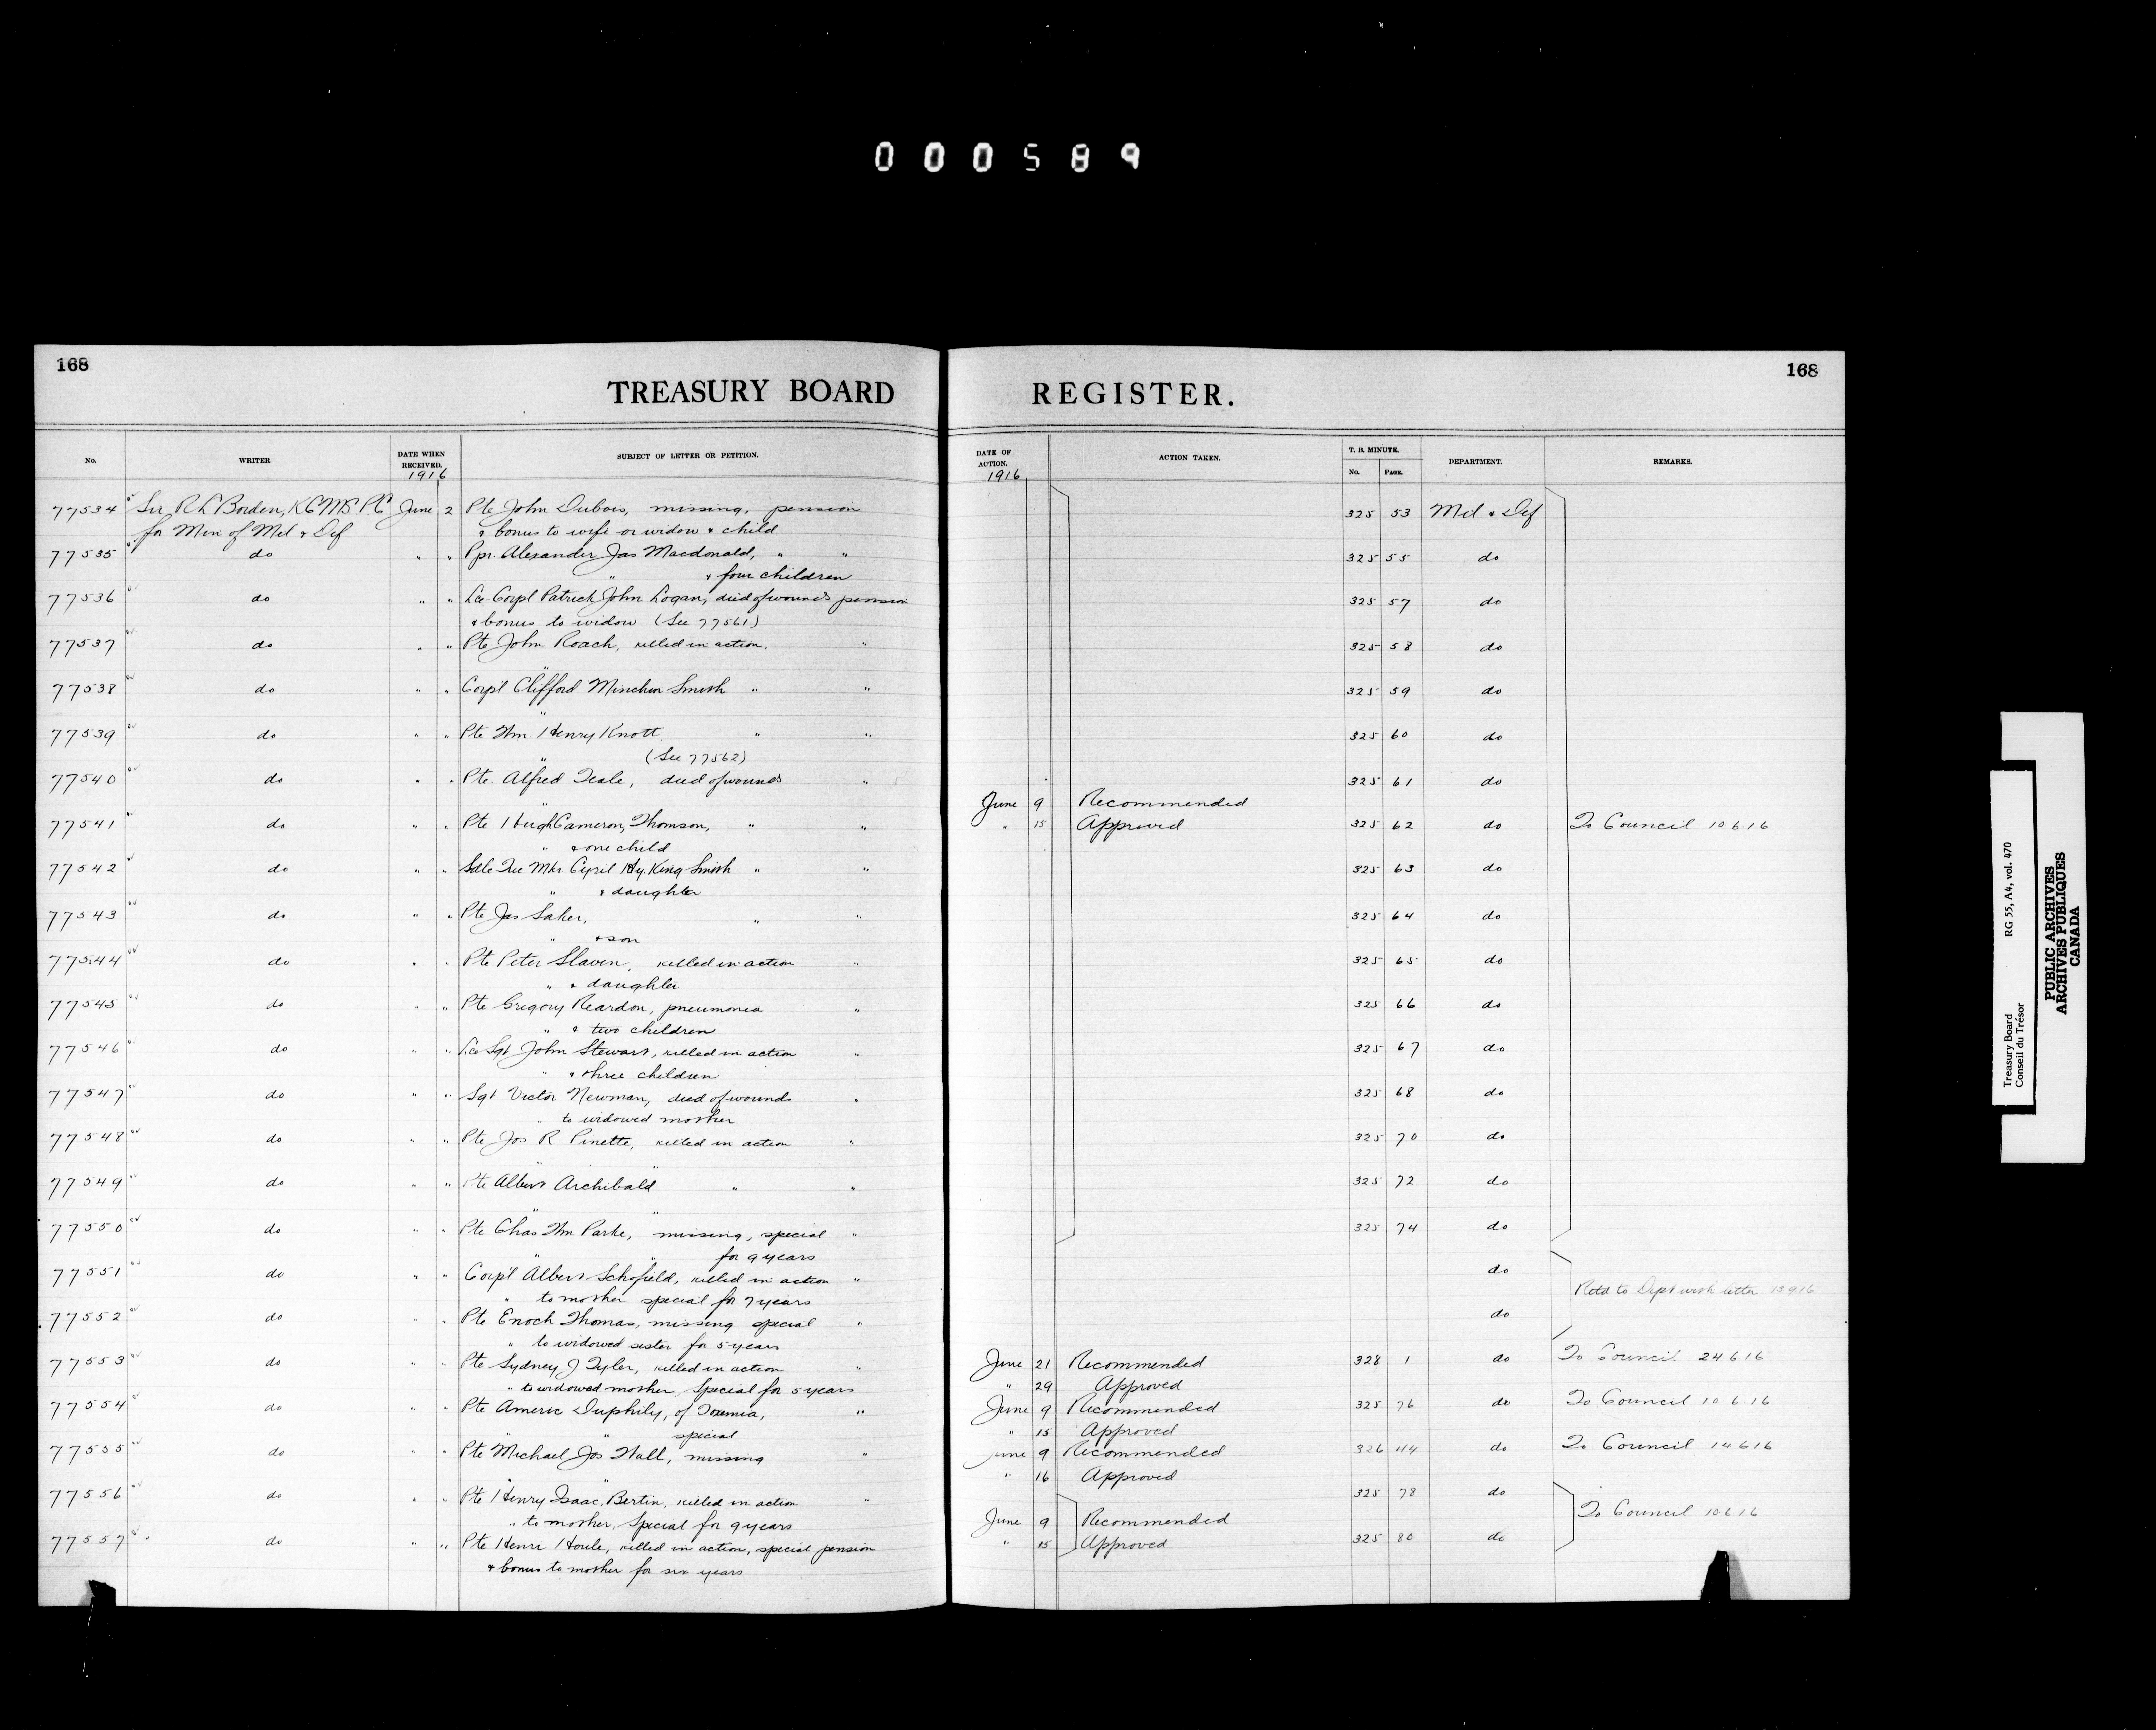 000589
168
TREASURY BOARD REGISTER.
168
No. WRITER DATE WHEN RECEIVED. SUBJECT OF LETTER OR PETITION. DATE OF ACTION. ACTION TAKEN. T. B. MINUTE. No. PAGE. DEPARTMENT. REMARKS.
1916 1916
77534 Sir R L Borden, KCMG PC June 2 Pte John Dubois, missing, pension 325 53 Mil & Def
for Min of Mil & Def & bonus to wife or widow & child
77535 do " " Ppr. Alexander Jas Macdonald, " " 325 55 do
" & four children
77536 do " " Lce-Corpl Patrick John Logan, died of wounds pension 325 57 do
& bonus to widow (See 77561)
77537 do " " Pte John Roach, killed in action, " 325 58 do
"
77538 do " " Corpl Clifford Minchin Smith " " 325 59 do
"
77539 do " " Pte Wm Henry Knott " " 325 60 do
" (See 77562)
77540 do " " Pte. Alfred Teale, died of wounds " 325 61 do
" June 9 Recommended
77541 do " " Pte Hugh Cameron Thomson, " " " 15 Approved 325 62 do To Council 10 6 16
" & one child
77542 do " " Sdle Tree Mkr Cyril Hy. King Smith " " 325 63 do
" & daughter
77543 do " " Pte Jas Saker, " " 325 64 do
" & son
77544 do " " Pte Peter Slaven, killed in action " 325 65 do
" & daughter
77545 do " " Pte Gregory Reardon, pneumonia " 325 66 do
" & two children
77546 do " " Lce Sgt John Stewart, killed in action " 325 67 do
" & three children
77547 do " " Sgt Victor Newman, died of wounds " 325 68 do
" to widowed mother
77548 do " " Pte Jos R Pinette, killed in action " 325 70 do
" "
77549 do " " Pte Albert Archibald " " 325 72 do
" "
77550 do " " Pte Chas Wm Parke, missing, special " 325 74 do
" " for 9 years
77551 do " " Corpl Albert Schofield, killed in action " do
" to mother special for 7 years Retd to Dept with letter 13 9 16
77552 do " " Pte Enoch Thomas, missing special " do
" to widowed sister for 5 years
77553 do " " Pte Sydney J Tyler, killed in action " June 21 Recommended 328 1 do To Council 24 6 16
" to widowed mother, Special for 5 years " 29 Approved
77554 do " " Pte Americ Duphily, of Toxemia, " June 9 Recommended 325 76 do To Council 10 6 16
" " special " 15 Approved
77555 do " " Pte Michael Jos Wall, missing " June 9 Recommended 326 44 do To Council 14 6 16
" " " 16 Approved
77556 do " " Pte Henry Isaac Bertin, killed in action " 325 78 do
" to mother, Special for 9 years June 9 Recommended To Council 10 6 16
77557 do " " Pte Henri Houle, killed in action, special pension " 15 Approved 325 80 do
& bonus to mother for six years
Treasury Board RG 55, A4, vol. 470
Conseil du Trésor
PUBLIC ARCHIVES
ARCHIVES PUBLIQUES
CANADA